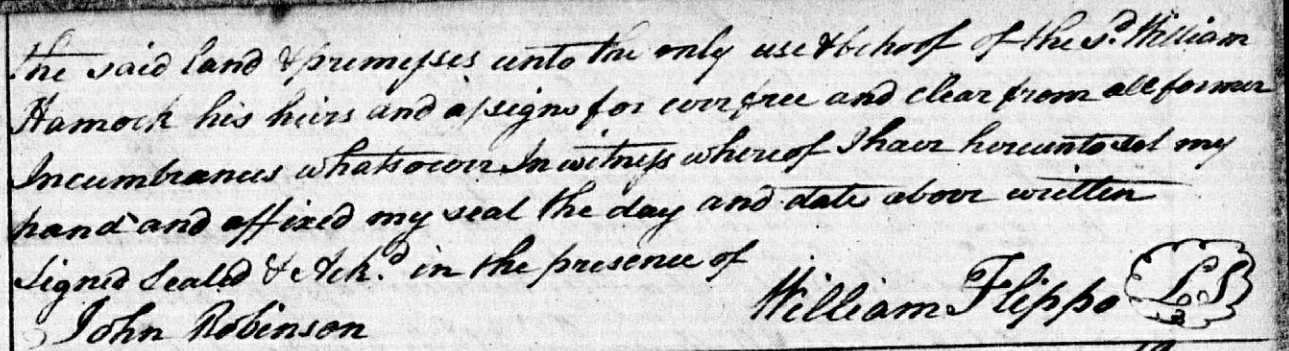 the said land & premisses unto the only use & behoof of the sd. William
Hamock his heirs and assigns for ever free and clear from all former
Incumbrances whatsoever In witness whereof I have hereunto set my
hand and affixed my seal the day and date above written
Signed Sealed & Ackd. in the presence of
John Robinson
William Flippo LS